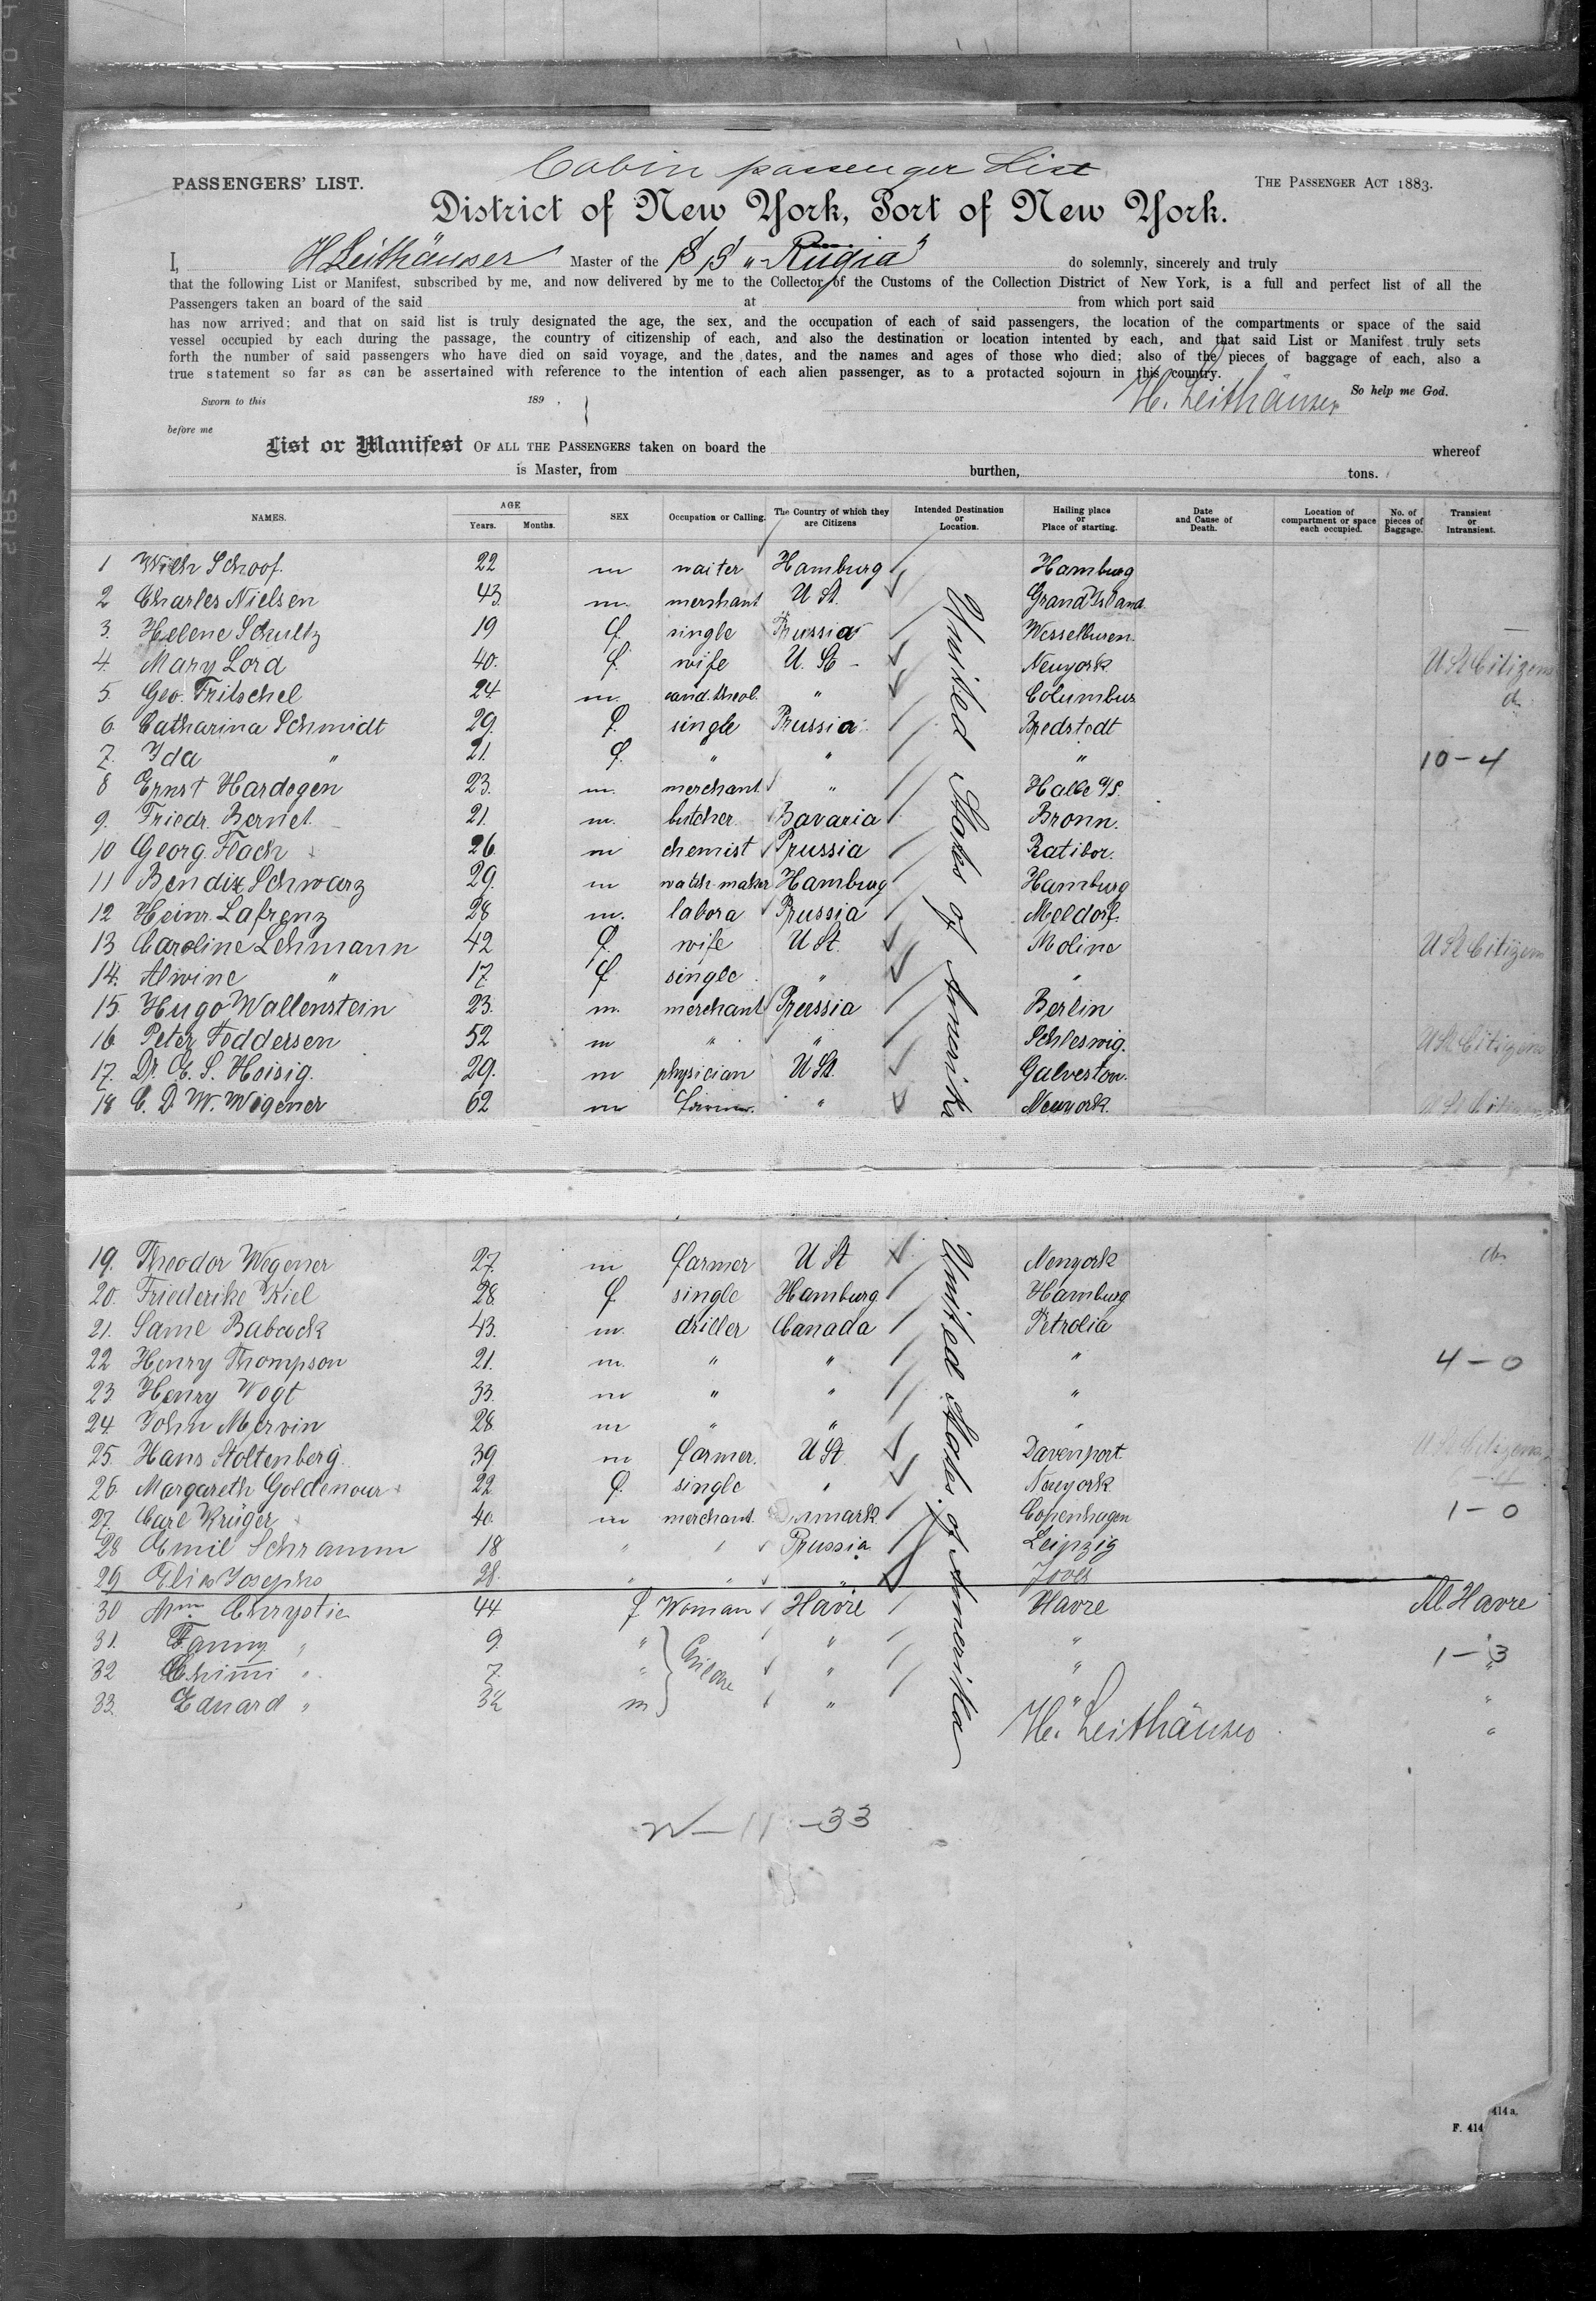 Cabin passenger List
PASSENGERS' LIST.
THE PASSENGER ACT 1883.
District of New York, Port of New York.
I, H Leithäuser Master of the SS "Rugia" do solemnly, sincerely and truly
that the following List or Manifest, subscribed by me, and now delivered by me to the Collector of the Customs of the Collection District of New York, is a full and perfect list of all the
Passengers taken an board of the said at from which port said
has now arrived; and that on said list is truly designated the age, the sex, and the occupation of each of said passengers, the location of the compartments or space of the said
vessel occupied by each during the passage, the country of citizenship of each, and also the destination or location intented by each, and that said List or Manifest truly sets
forth the number of said passengers who have died on said voyage, and the dates, and the names and ages of those who died; also of the pieces of baggage of each, also a
true statement so far as can be assertained with reference to the intention of each alien passenger, as to a protacted sojourn in this country.
H. Leithäuser So help me God.
Sworn to this 189 ,
before me
List or Manifest OF ALL THE PASSENGERS taken on board the whereof
is Master, from burthen, tons.
NAMES. AGE Years. Months. SEX Occupation or Calling. The Country of which they are Citizens Intended Destination or Location. Hailing place or Place of starting. Date and Cause of Death. Location of compartment or space each occupied. No. of pieces of Baggage. Transient or Intransient.
1 Wilh Schoof. 22 m waiter Hamburg Hamburg
2 Charles Nielsen 43 m. merchant U St. Grand Island
3. Helene Schultz 19 f single Prussia Wesselburen
4. Mary Lord 40. f. wife U. St - Newyork U St Citizens
5 Geo. Fritschel 24 m. cand. theol. " Columbus do
6. Catharina Schmidt 29. f. single Prussia Bredstedt
7. Ida " 21. f. " " " 10-4
8 Ernst Hardegen 23. m. merchant " Halle a/S.
9. Friedr. Bernet 21. m. butcher Bavaria Bronn.
10 Georg Flach 26 m chemist Prussia Ratibor.
11 Bendix Schwarz 29. m watch maker Hamburg Hamburg
12 Heinr. Lafrenz 28 m. labora Prussia Meldorf.
13 Caroline Lehmann 42 f. wife U St. Moline U St Citizens
14. Alwine " 17 f single " "
15. Hugo Wallenstein 23. m. merchant Prussia Berlin
16 Peter Feddersen 52 m " " Schleswig. U St Citizens
17. Dr. E. S. Hoisig. 29. m physician U St. Galveston.
18 C. D. W. Wegener 62 m farmer. " Newyork. U St Citizens
United States of Amerika
19. Theodor Wegener 27. m farmer U St Newyork do
20. Friederike Kiel 28 f. single Hamburg Hamburg
21. Saml Babcock 43. m. driller Canada Petrolia
22 Henry Thompson 21. m. " " " 4-0
23 Henry Vogt 33. m " " "
24. John Mervin 28 m " " "
25. Hans Stoltenberg. 39 m farmer. U St. Davenport U St Citizens
26. Margareth Goldenour 22 f. single " Newyork
27. Carl Krüger 40. m merchant. Denmark. Copenhagen 1-0
28 Emil Schramm 18 " " Prussia Leipzig
29 Elias Josephs 28. " " "
30 Mme Chrystie 44 f Woman Havre Havre Al Havre
31. Fanny " 9. " Children " " 1-3
32 " 7. " " " "
33. Eduard " m " " "
United States of Amerika
H. Leithäuser "
11-33
414 a.
F. 414